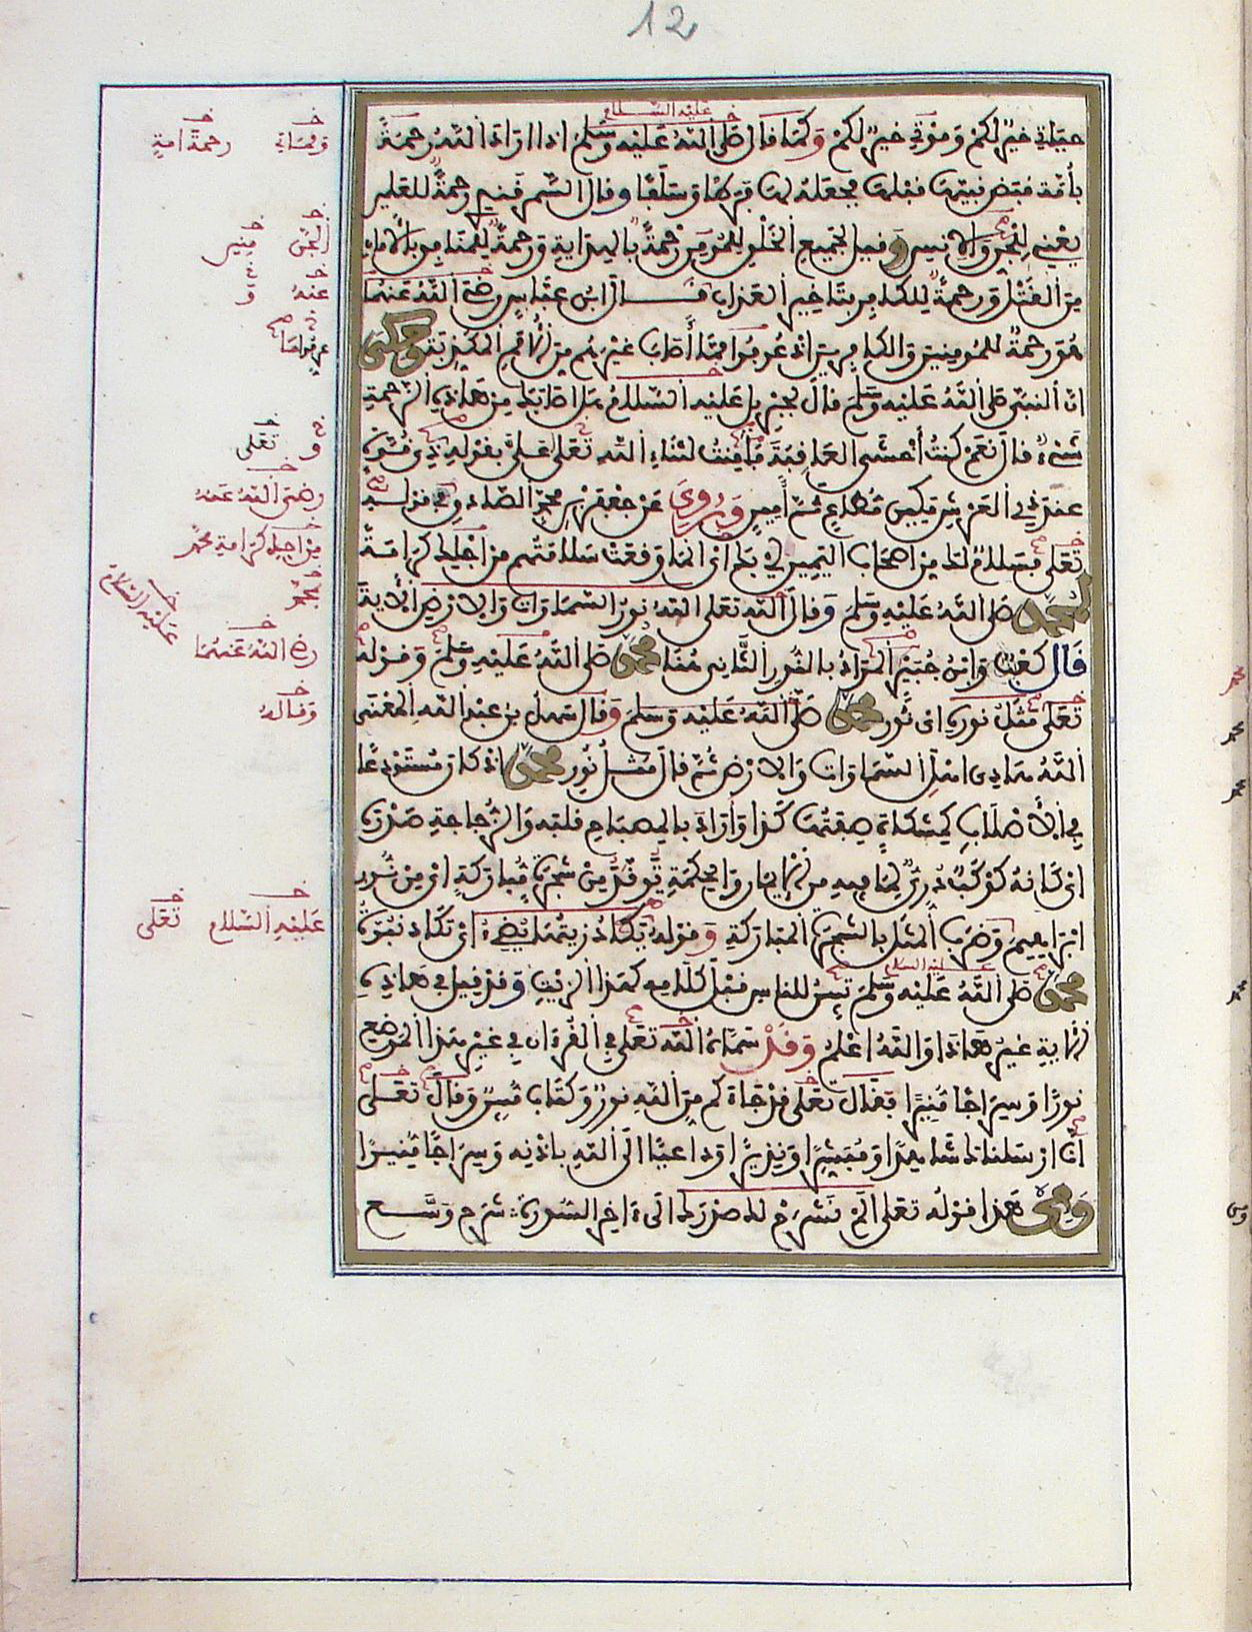 12
عليه السلام
حياتي خير لكم وموتي خير لكم وكما قال صلى الله عليه وسلم اذا اراد الله رحمة
بأمة قبض نبيها قبلها فجعله لها فرطا وسلفا وقال السمرقندي رحمة للعلمين
يعني للجن والانس وقيل لجميع الخلق للمومن رحمة بالهداية ورحمة للمنافق بالامان
من القتل ورحمة للكافر بتاخير العذاب قال ابن عباس رضي الله عنهما
هو رحمة للمومنين والكافرين اذ عوفوا مما أصاب غيرهم من الامم المكذبة وحكي
ان النبي صلى الله عليه وسلم قال لجبريل عليه السلام هل اصابك من هاذه الرحمة
شيء قال نعم كنت أخشى العاقبة فأمنت لثناء الله تعلى علي بقوله ذي قوة
عند ذي العرش مكين مطاع ثم أمين وروي عن جعفر بن محمد الصادق في قوله
تعلى فسلام لك من اصحاب اليمين اي بك انما وقعت سلامتهم من اجلك كرامة
لمحمد صلى الله عليه وسلم وقال الله تعلى الله نور السماوات والارض الاية
قال كعب وابن جبير المراد بالنور الثاني هنا محمد صلى الله عليه وسلم وقوله
تعلى مثل نوره اي نور محمد صلى الله عليه وسلم وقال سهل بن عبد الله المعنى
الله هادي اهل السماوات والارض ثم قال مثل نور محمد اذ كان مستودعا
في الأصلاب كمشكاة صفتها كذا وأراد بالمصباح قلبه والزجاجة صدره
اي كانه كوكب دري لما فيه من الايمان والحكمة توقد من شجرة مباركة اي من نور
ابراهيم وضرب المثل بالشجرة المباركة وقوله يكاد زيتها يضيء اي تكاد نبوة
عليه السلام
محمد صلى الله عليه وسلم تبين للناس قبل كلامه كهذا الزيت وقد قيل في هاذه
الاية غير هاذا والله اعلم وقد سماه الله تعلى في القرءان في غير هذا الموضع
نورا وسراجا منيرا فقال تعلى قد جاءكم من الله نور وكتاب مبين وقال تعلى
انا ارسلناك شاهدا ومبشرا ونذيرا وداعيا الى الله باذنه وسراجا منيرا
ومن هذا قوله تعلى الم نشرح لك صدرك الى ءاخر السورة شرح وسع
رحمة امة
الجن
عنه و
و تعلى
رضي الله عنه
من اجل كرامة محمد
عليه السلام
رضي الله عنهما
وقاله
عليه السلام تعلى
محمد
محمد
محمد
محمد